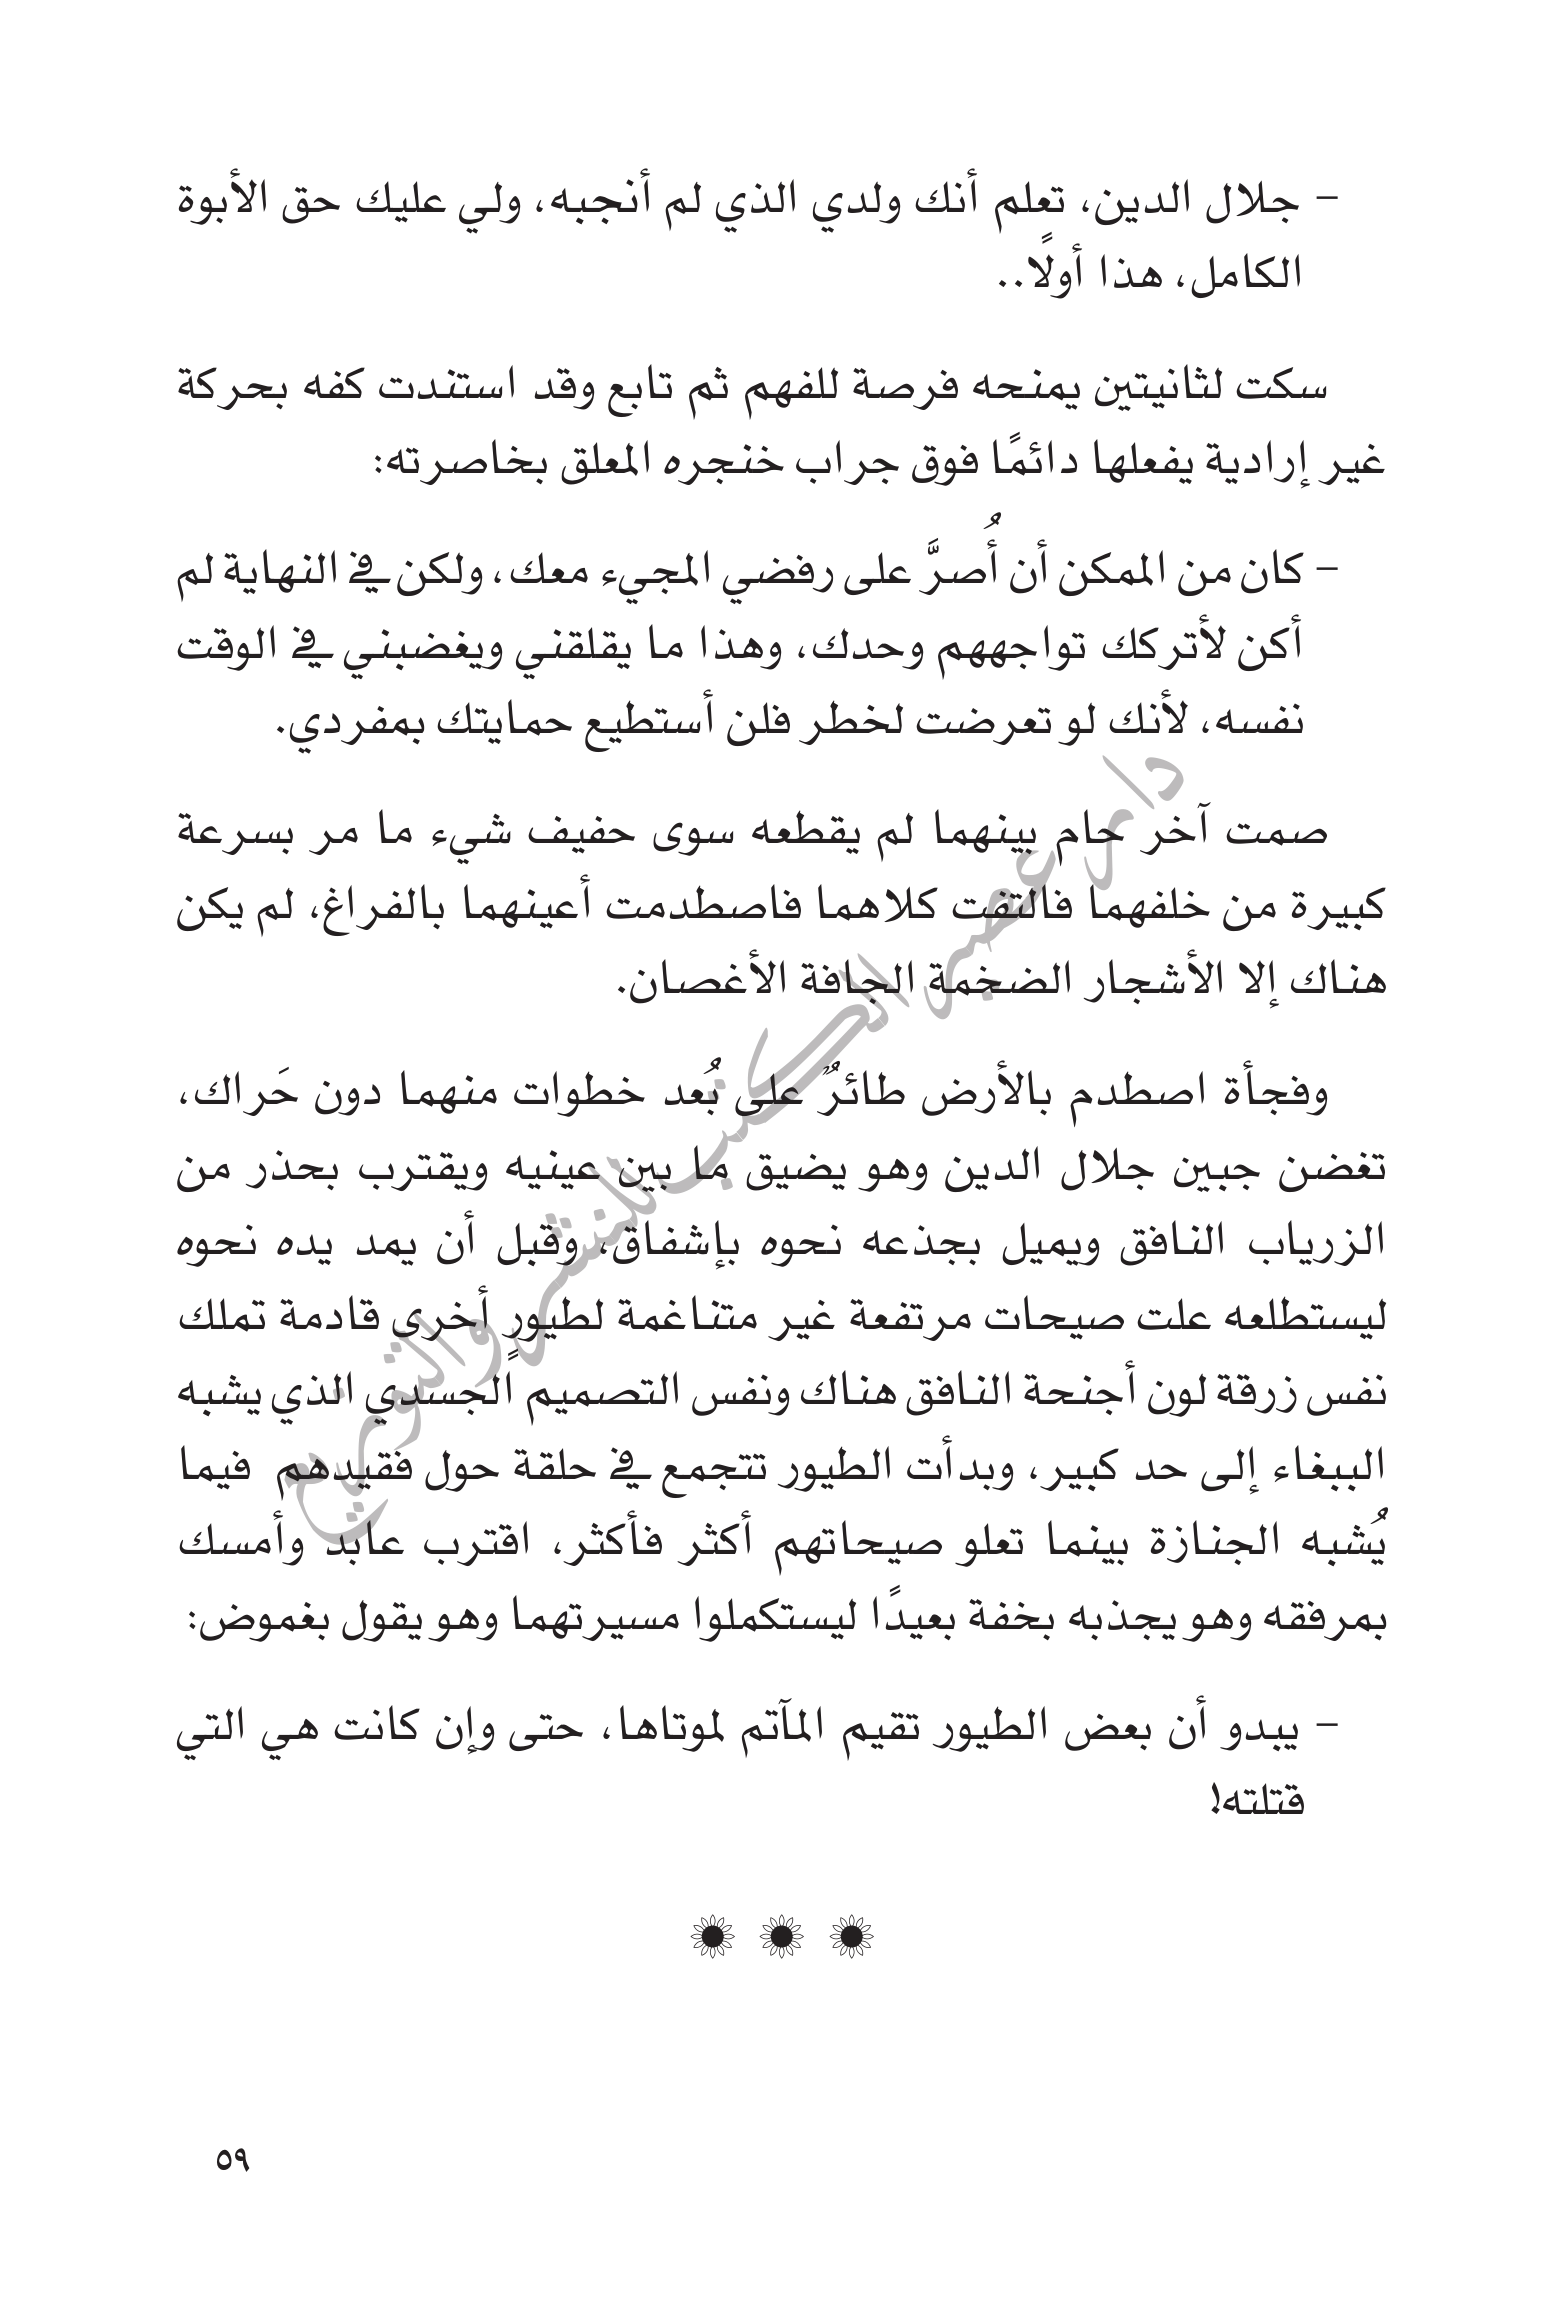 – جلال الدين، تعلم أنك ولدي الذي لم أنجبه، ولي عليك حق الأبوة
الكامل، هذا أولًا..
سكت لثانيتين يمنحه فرصة للفهم ثم تابع وقد استندت كفه بحركة
غير إرادية يفعلها دائمًا فوق جراب خنجره المعلق بخاصرته:
– كان من الممكن أن أُصرَّ على رفضي المجيء معك، ولكن في النهاية لم
أكن لأتركك تواجههم وحدك، وهذا ما يقلقني ويغضبني في الوقت
نفسه، لأنك لو تعرضت لخطر فلن أستطيع حمايتك بمفردي.
صمت آخر حام بينهما لم يقطعه سوى حفيف شيء ما مر بسرعة
كبيرة من خلفهما فالتفت كلاهما فاصطدمت أعينهما بالفراغ، لم يكن
هناك إلا الأشجار الضخمة الجافة الأغصان.
وفجأة اصطدم بالأرض طائرٌ على بُعد خطوات منهما دون حَراك،
تغضن جبين جلال الدين وهو يضيق ما بين عينيه ويقترب بحذر من
الزرياب النافق ويميل بجذعه نحوه بإشفاق، وقبل أن يمد يده نحوه
ليستطلعه علت صيحات مرتفعة غير متناغمة لطيورٍ أخرى قادمة تملك
نفس زرقة لون أجنحة النافق هناك ونفس التصميم الجسدي الذي يشبه
الببغاء إلى حد كبير، وبدأت الطيور تتجمع في حلقة حول فقيدهم فيما
يُشبه الجنازة بينما تعلو صيحاتهم أكثر فأكثر، اقترب عابد وأمسك
بمرفقه وهو يجذبه بخفة بعيدًا ليستكملوا مسيرتهما وهو يقول بغموض:
– يبدو أن بعض الطيور تقيم المآتم لموتاها، حتى وإن كانت هي التي
قتلته!
٥٩
دار عصير الكتب للنشر والتوزيع